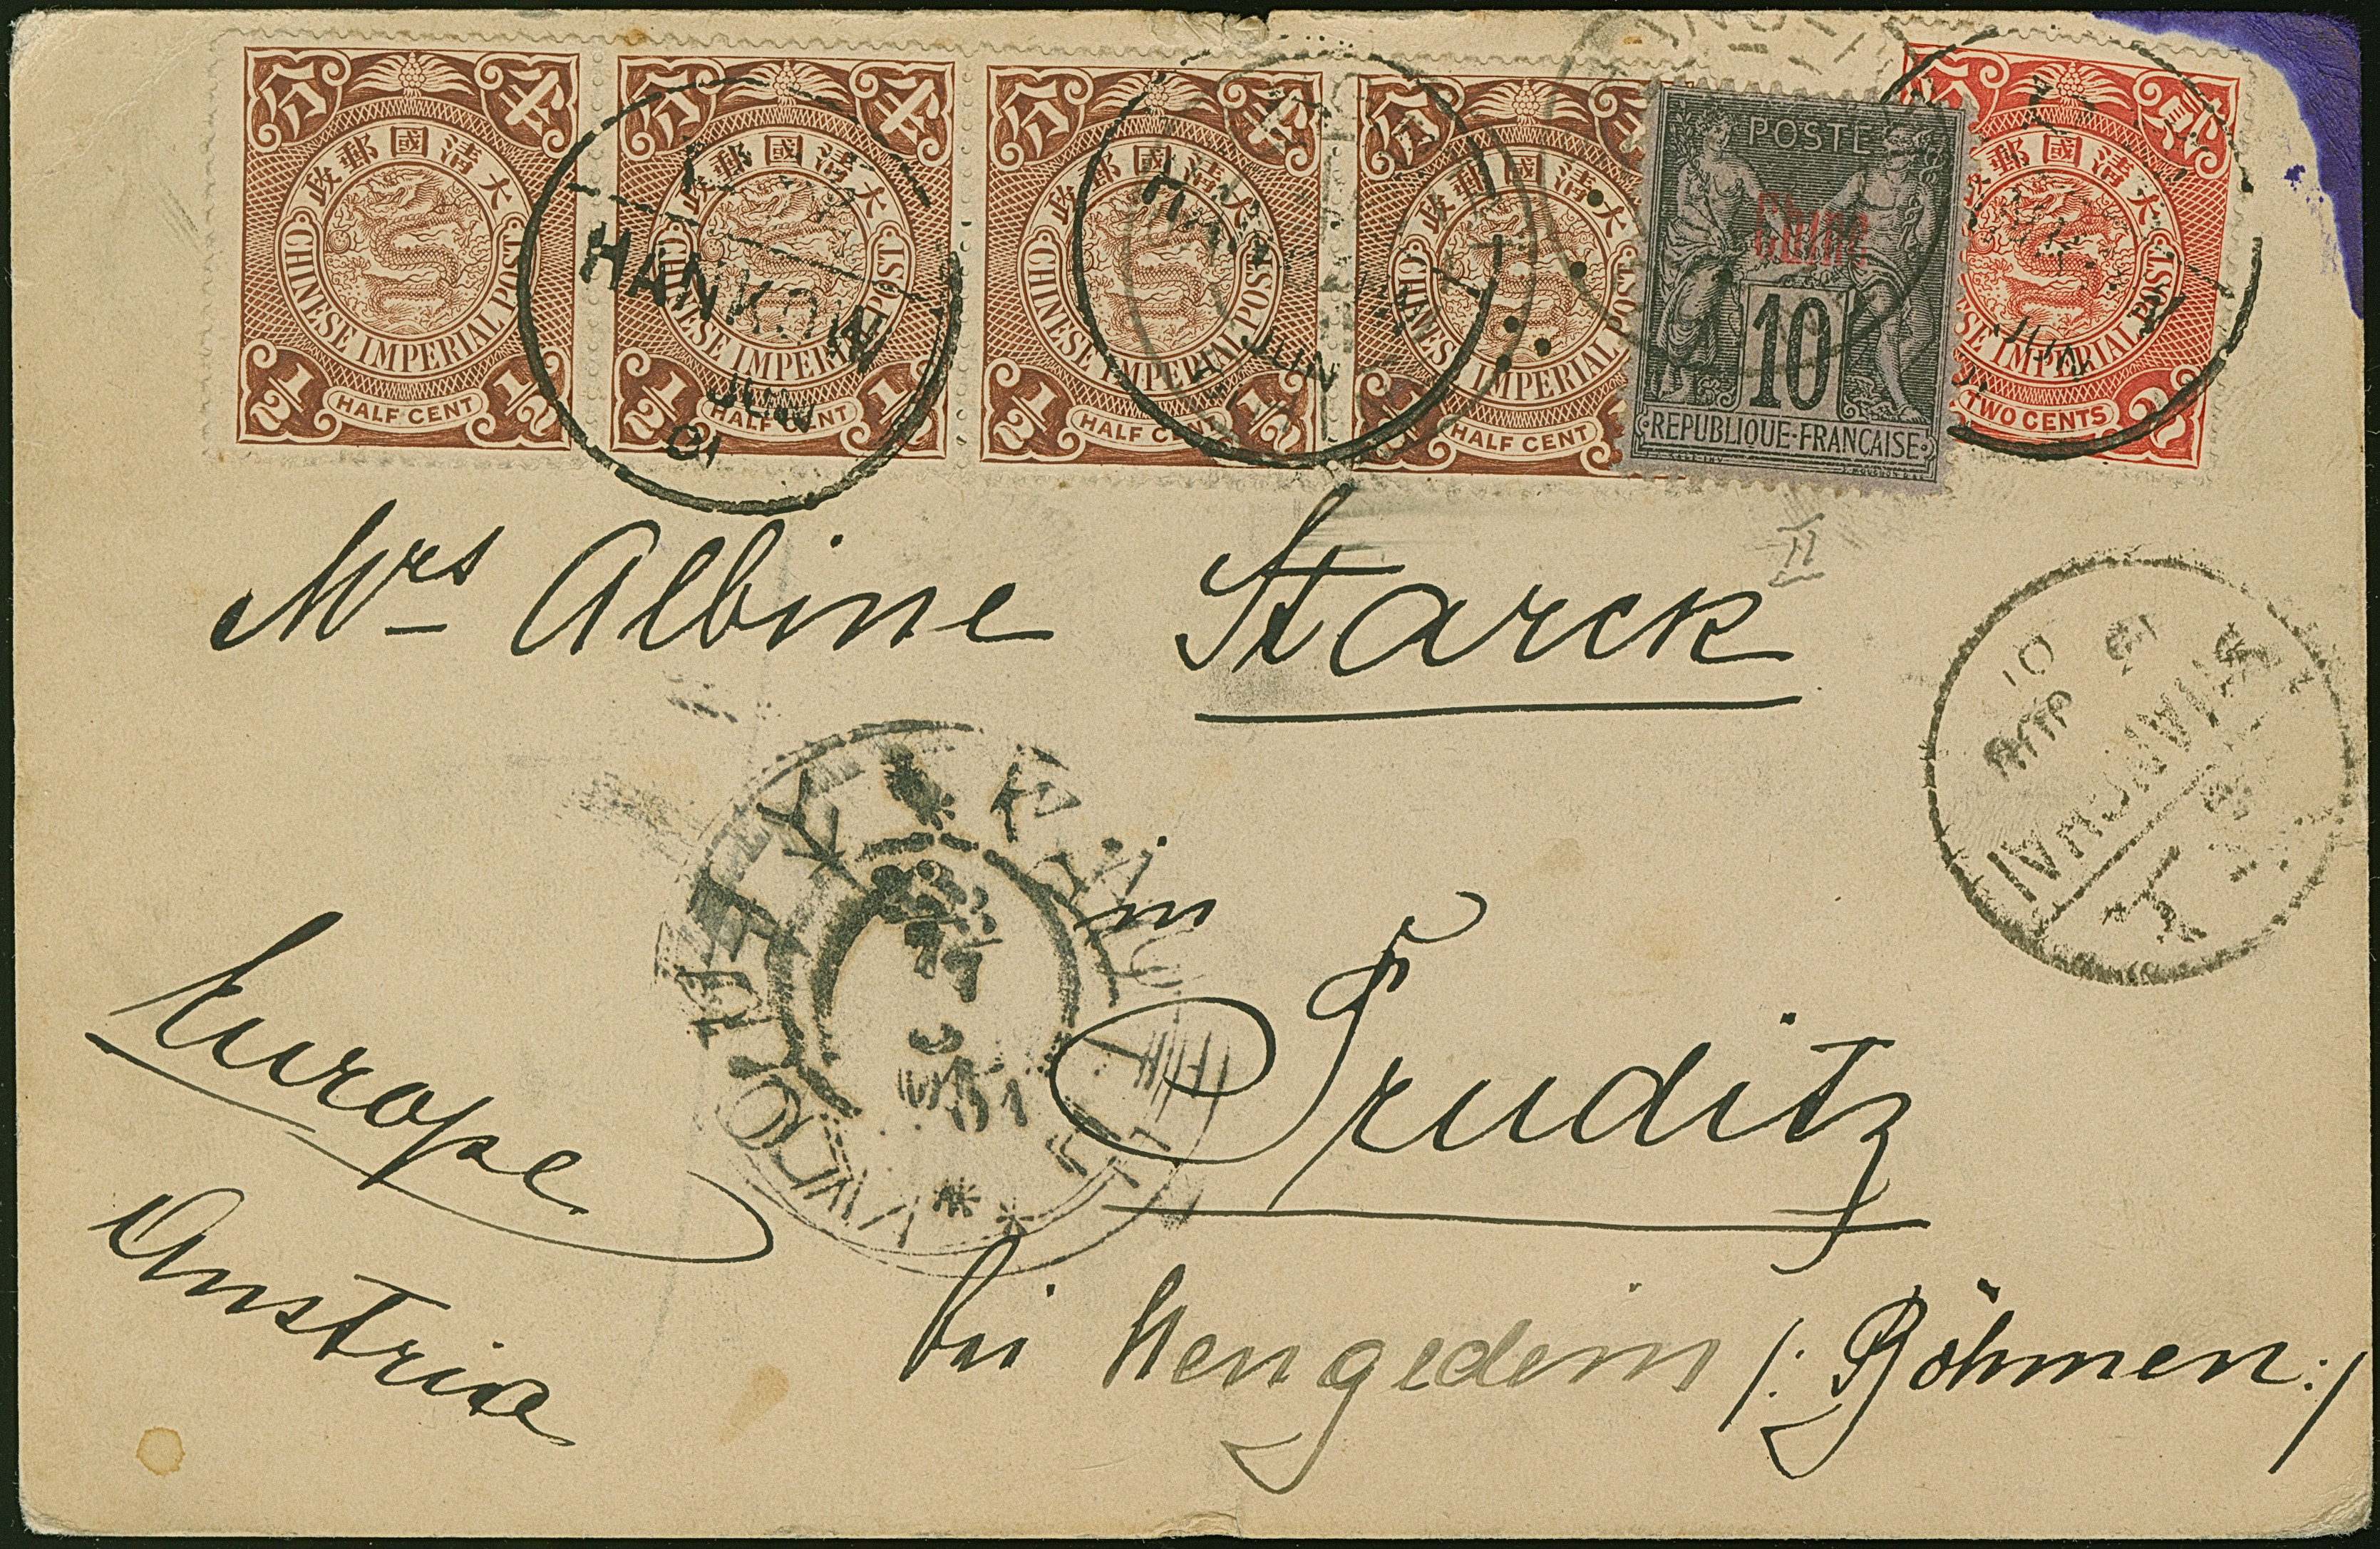 分 半
大清國郵政
CHINESE IMPERIAL POST
1/2 HALF CENT 1/2
分 半
大清國郵政
CHINESE IMPERIAL POST
1/2 HALF CENT 1/2
分 半
大清國郵政
CHINESE IMPERIAL POST
1/2 HALF CENT 1/2
分 半
大清國郵政
CHINESE IMPERIAL POST
1/2 HALF CENT
POSTE
Chine
10
REPUBLIQUE·FRANCAISE
分 貳
郵國清大
IMPERIAL POST
TWO CENTS 2
HANKOW
JUN
01
JUN
JUN
II
Mrs Albine Starck
SHANGHAI
01
in Truditz
bei Wengedein /: Böhmen :/
Europe
Austria